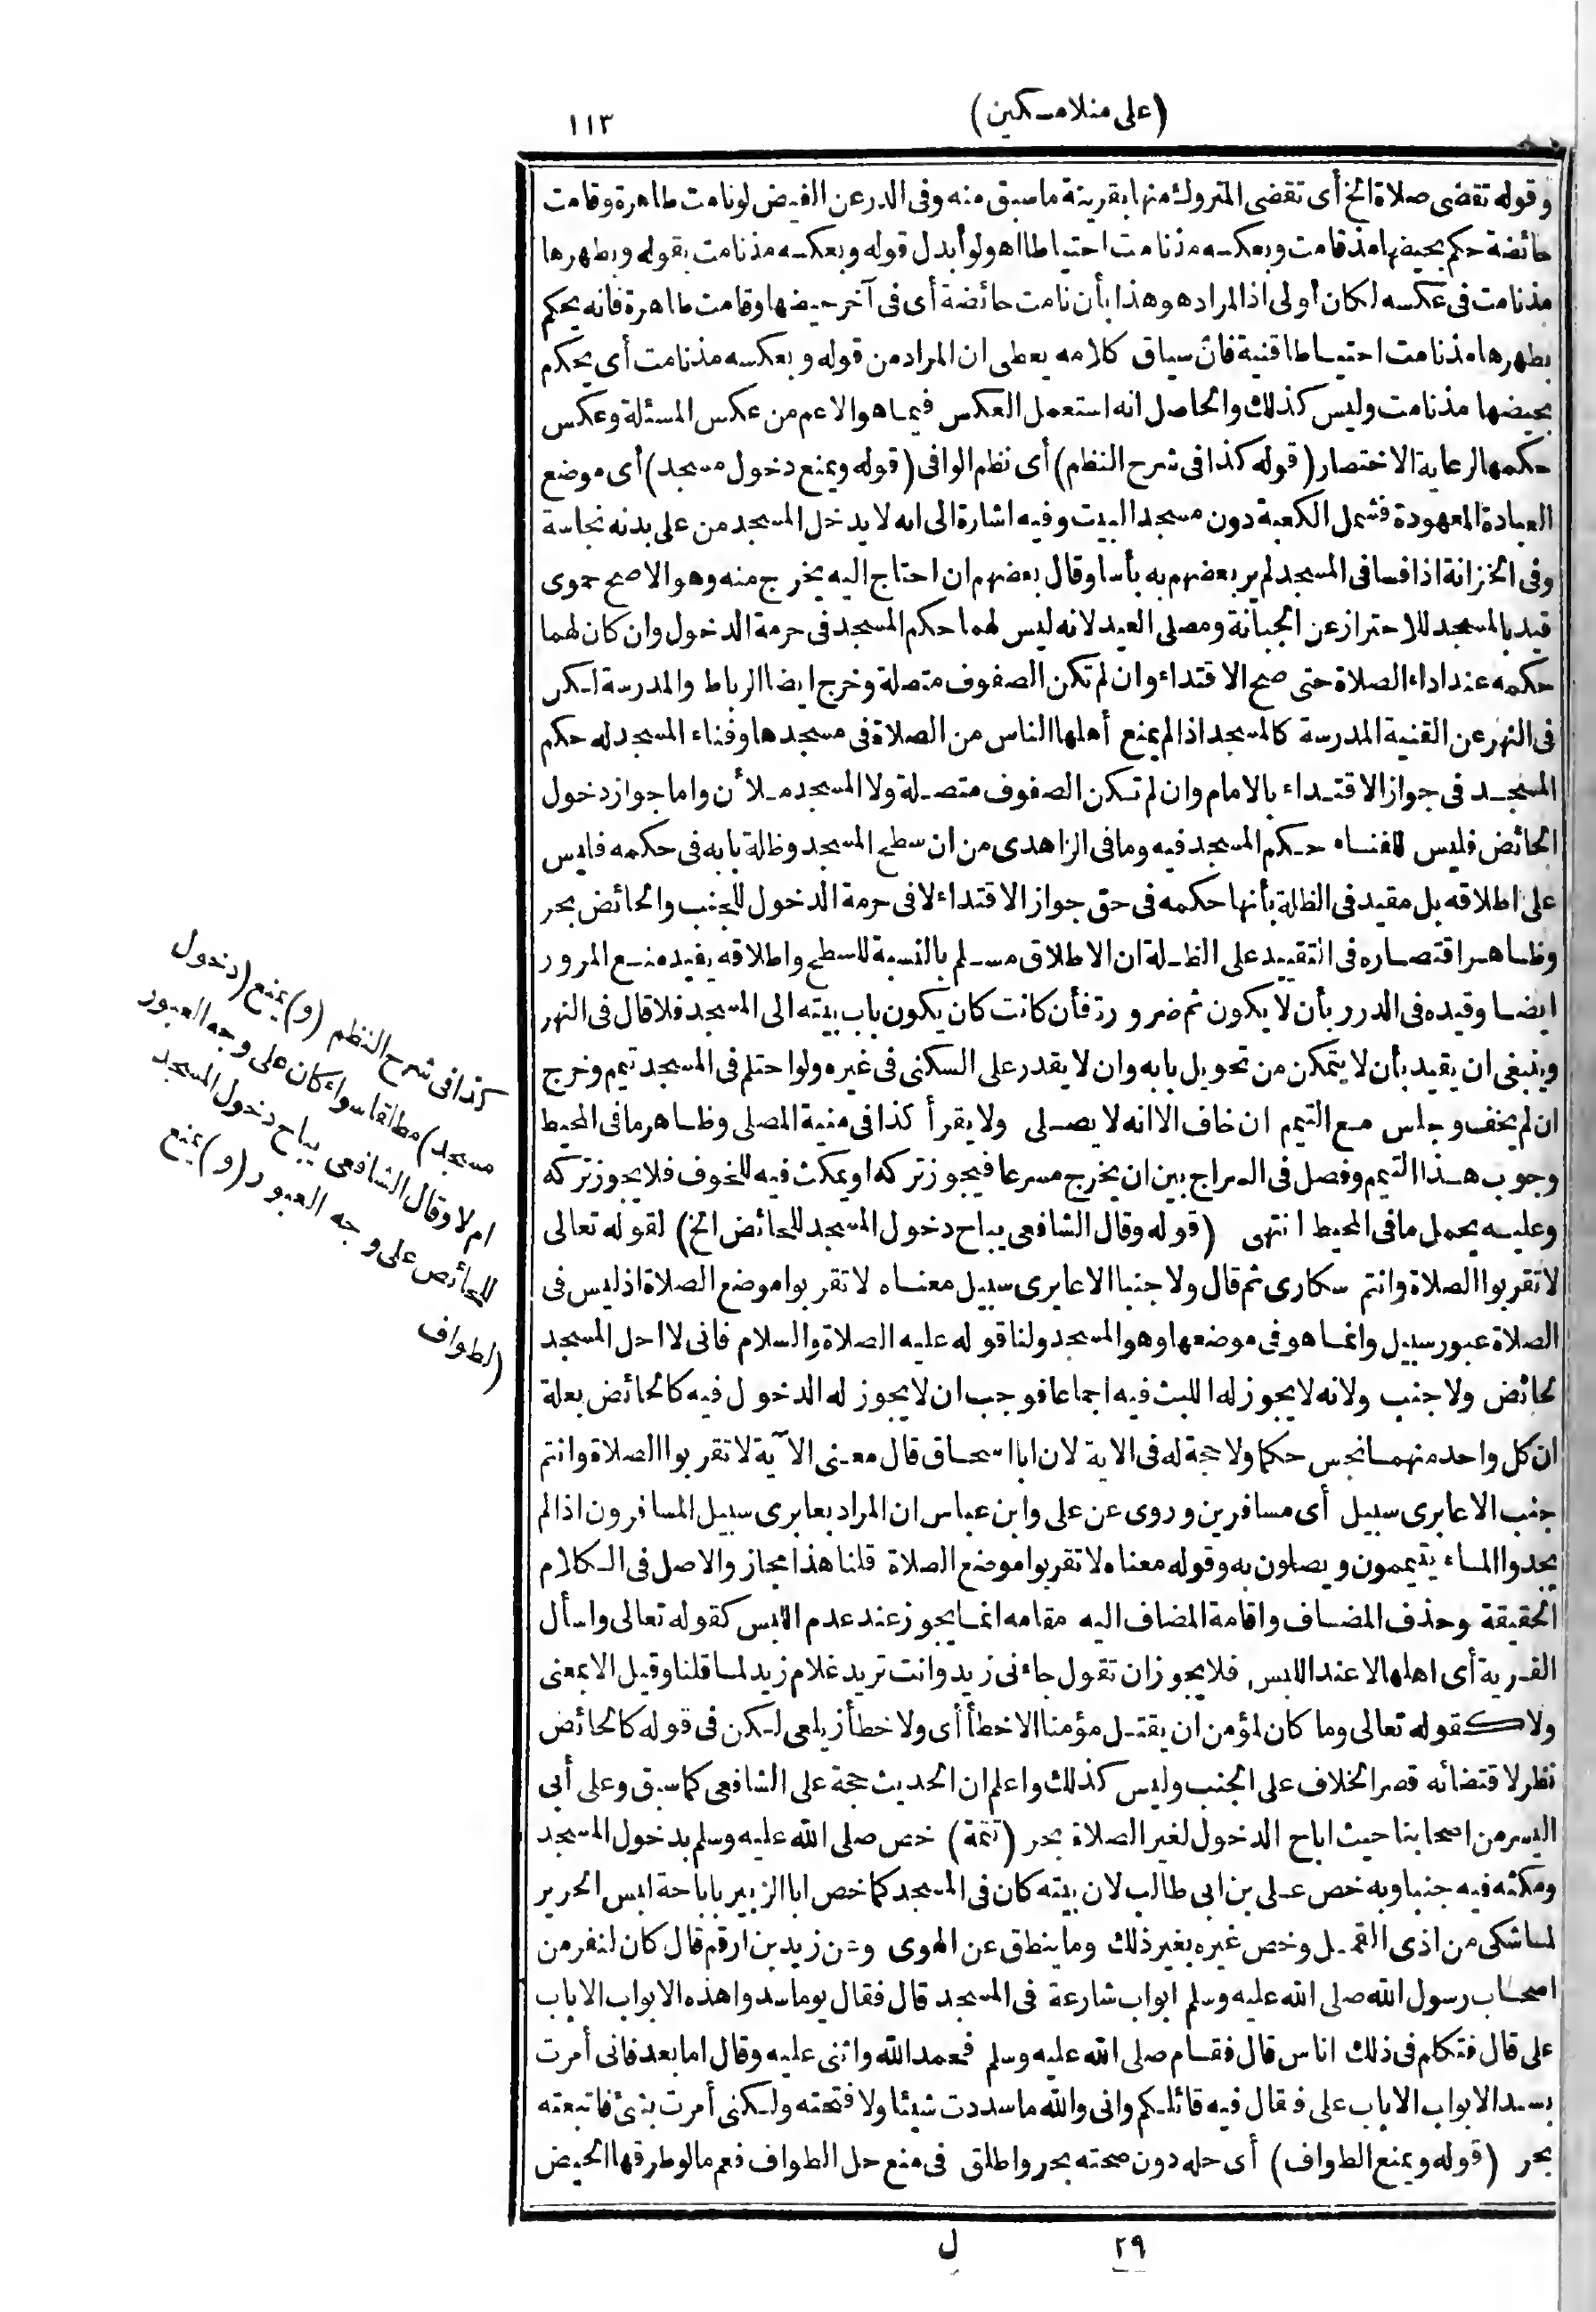 (على منلا مسكين)
١١٣
وقوله تقضى صلاة الخ أى تقضى المتروك منها بقرينة ما سبق منه وفى الدر عن الفيض لو نامت طاهرة وقامت
حائضة حكم بحيضها مذ قامت وبعكسه مذ نامت احتياطا اهـ ولو أبدل قوله وبعكسه مذ نامت بقوله وبطهرها
مذ نامت فى عكسه لكان أولى اذ المراد هو هذا بأن نامت حائضة أى فى آخر حيضها وقامت طاهرة فانه يحكم
بطهرها مذ نامت احتياطا قنية فان سياق كلامه يعطى ان المراد من قوله وبعكسه مذ نامت أى يحكم
بحيضها مذ نامت وليس كذلك والحاصل انه استعمل العكس فيما هو الاعم من عكس المسئلة وعكس
حكمها لرعاية الاختصار (قوله كذا فى شرح النظم) أى نظم الوافى (قوله ويمنع دخول مسجد) أى موضع
العبادة المعهودة فشمل الكعبة دون مسجد البيت وفيه اشارة الى انه لا يدخل المسجد من على بدنه نجاسة
وفى الخزانة اذا فسا فى المسجد لم ير بعضهم به بأسا وقال بعضهم ان احتاج اليه يخرج منه وهو الاصح حموى
قيد بالمسجد للاحتراز عن الجبانة ومصلى العيد لانه ليس لهما حكم المسجد فى حرمة الدخول وان كان لهما
حكمه عند اداء الصلاة حتى صح الاقتداء وان لم تكن الصفوف متصلة وخرج ايضا الرباط والمدرسة لكن
فى النهر عن القنية المدرسة كالمسجد اذا لم يمنع أهلها الناس من الصلاة فى مسجدها وفناء المسجد له حكم
المسجد فى جواز الاقتداء بالامام وان لم تكن الصفوف متصلة ولا المسجد ملأن واما جواز دخول
الحائض فليس للفناء حكم المسجد فيه وما فى الزاهدى من ان سطح المسجد وظلة بابه فى حكمه فليس
على اطلاقه بل مقيد فى الظلة بأنها حكمه فى حق جواز الاقتداء لا فى حرمة الدخول للجنب والحائض بحر
وظاهر اقتصاره فى التقييد على الظلة ان الاطلاق مسلم بالنسبة للسطح واطلاقه يفيد منع المرور
ايضا وقيده فى الدرر بأن لا يكون ثم ضرورة فأن كانت كان يكون باب بيته الى المسجد فلا قال فى النهر
وينبغى ان يقيد بأن لا يتمكن من تحويل بابه وان لا يقدر على السكنى فى غيره ولو احتلم فى المسجد تيمم وخرج
ان لم يخف وجلس مع التيمم ان خاف الا انه لا يصلى ولا يقرأ كذا فى منية المصلى وظاهر ما فى المحيط
وجوب هذا التيمم وفصل فى السراج بين ان يخرج مسرعا فيجوز تركه او يمكث فيه للخوف فلا يجوز تركه
وعليه يحمل ما فى المحيط انتهى (قوله وقال الشافعى يباح دخول المسجد للحائض الخ) لقوله تعالى
لا تقربوا الصلاة وانتم سكارى ثم قال ولا جنبا الا عابرى سبيل معناه لا تقربوا موضع الصلاة اذ ليس فى
الصلاة عبور سبيل وانما هو فى موضعها وهو المسجد ولنا قوله عليه الصلاة والسلام فانى لا احل المسجد
لحائض ولا جنب ولانه لا يجوز له اللبث فيه اجماعا فوجب ان لا يجوز له الدخول فيه كالحائض بعلة
ان كل واحد منهما نجس حكما ولا حجة له فى الاية لان ابا اسحاق قال معنى الآية لا تقربوا الصلاة وانتم
جنب الا عابرى سبيل أى مسافرين وروى عن على وابن عباس ان المراد بعابرى سبيل المسافرون اذا لم
يجدوا الماء يتيممون ويصلون به وقوله معناه لا تقربوا موضع الصلاة قلنا هذا مجاز والاصل فى الكلام
الحقيقة وحذف المضاف واقامة المضاف اليه مقامه انما يجوز عند عدم اللبس كقوله تعالى واسأل
القرية أى اهلها لا عند اللبس فلا يجوز ان تقول جاءنى زيد وانت تريد غلام زيد لما قلنا وقيل الا بمعنى
ولا كقوله تعالى وما كان لمؤمن ان يقتل مؤمنا الا خطأ أى ولا خطأ زيلعى لكن فى قوله كالحائض
نظر لاقتضائه قصر الخلاف على الجنب وليس كذلك واعلم ان الحديث حجة على الشافعى كما سبق وعلى أبى
اليسر من اصحابنا حيث اباح الدخول لغير الصلاة بحر (تتمة) خص صلى الله عليه وسلم بدخول المسجد
ومكثه فيه جنبا وبه خص على بن ابى طالب لان بيته كان فى المسجد كما خص ابا الزبير باباحة لبس الحرير
لما شكى من اذى القمل وخص غيره بغير ذلك وما ينطق عن الهوى وعن زيد بن ارقم قال كان لنفر من
اصحاب رسول الله صلى الله عليه وسلم ابواب شارعة فى المسجد قال فقال يوما سدوا هذه الابواب الا باب
على قال فتكلم فى ذلك اناس قال فقام صلى الله عليه وسلم فحمد الله واثنى عليه وقال اما بعد فانى أمرت
بسد الابواب الا باب على فقال فيه قائلكم وانى والله ما سددت شيئا ولا فتحته ولكنى أمرت بشئ فاتبعته
بحر (قوله ويمنع الطواف) أى حله دون صحته بحر واطلق فى منع حل الطواف فعم ما لو طرقها الحيض
كذا فى شرح النظم (و) يمنع (دخول
مسجد) مطلقا سواء كان على وجه العبور
ام لا وقال الشافعى يباح دخول المسجد
للحائض على وجه العبور (و) يمنع
(الطواف
٢٩
ل